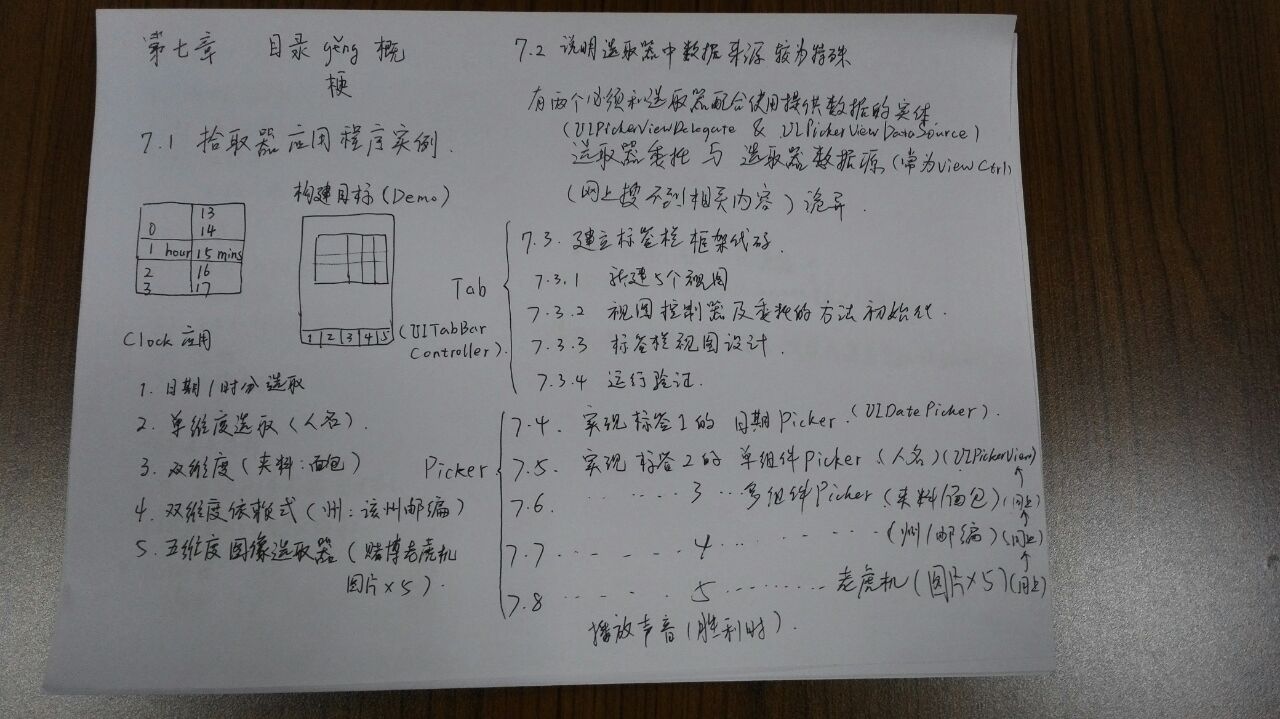 第七章 目录 gěng 概
梗
7.1 拾取器应用程序实例.
构建目标(Demo)
13
0 14
1 hour 15 mins
2 16
3 17
1 2 3 4 5
(UITabBar
Controller).
Clock 应用
1. 日期/时分选取
2. 单维度选取(人名).
3. 双维度(夹料:面包)
4. 双维度依赖式(州:该州邮编)
5. 五维度图像选取器(赌博老虎机
图片×5).
7.2 说明选取器中数据来源较为特殊
有两个必须和选取器配合使用提供数据的实体
(UIPickerViewDelegate & UIPickerViewDataSource)
选取器委托与选取器数据源(常为ViewCtrl)
(网上搜不到相关内容)诡异.
Tab
7.3. 建立标签栏框架代码.
7.3.1 新建5个视图
7.3.2 视图控制器及委托的方法初始化.
7.3.3 标签栏视图设计.
7.3.4 运行验证.
Picker
7.4. 实现标签1的日期Picker(UIDatePicker).
7.5. 实现标签2的单组件Picker(人名)(UIPickerView)
7.6 ...... 3 ... 多组件Picker(夹料/面包)(同上)
7.7 ...... 4 ...... (州/邮编)(同上)
7.8 ...... 5 ...... 老虎机(图片×5)(同上)
播放声音(胜利时).